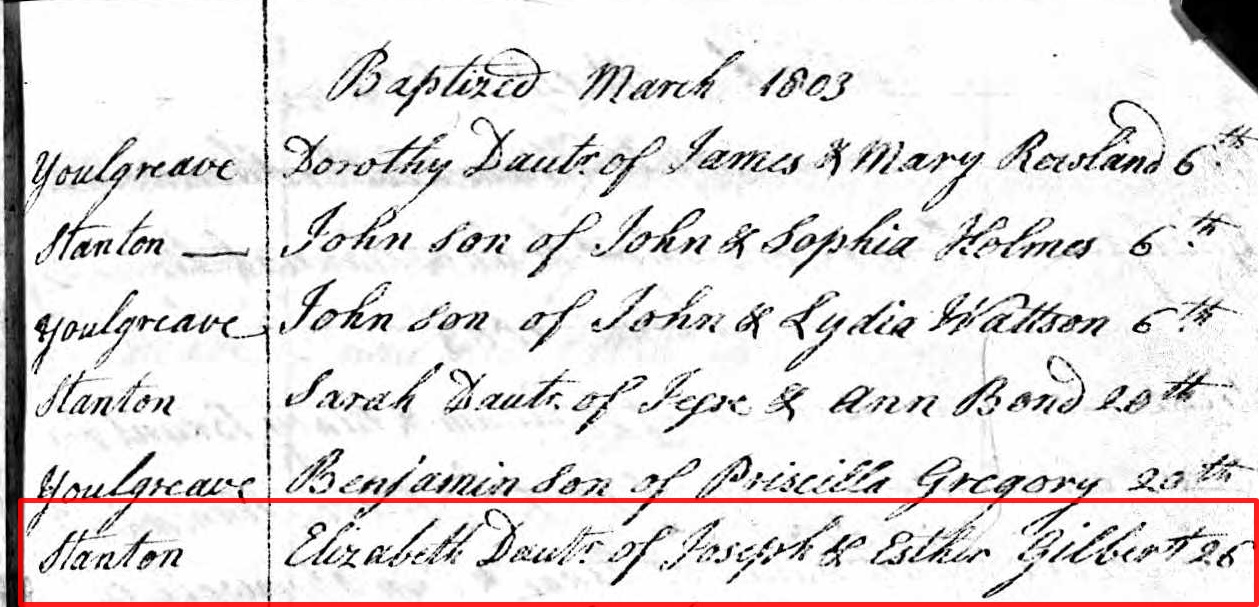 Baptized March 1803
Youlgreave Dorothy Dautr. of James & Mary Rowland 6th
Stanton — John son of John & Sophia Holmes 6th
Youlgreave John son of John & Lydia Wattson 6th
Stanton Sarah Dautr. of & Ann Bond 20th
Youlgreave Benjamin son of Priscilla Gregory 20th
Stanton Elizabeth Dautr. of Joseph & Esther Gilbert 26